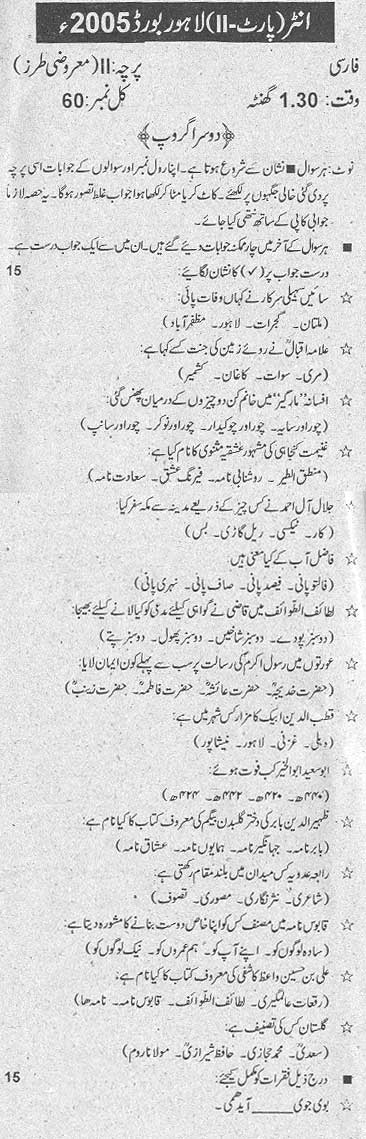 انٹر (پارٹ-II) لاہور بورڈ 2005ء
فارسی پرچہ: II (معروضی طرز)
وقت: 1.30 گھنٹہ کل نمبر: 60
﴿دوسرا گروپ﴾
نوٹ: ہر سوال ■ نشان سے شروع ہوتا ہے۔ اپنا رول نمبر اور سوالوں کے جوابات اسی پرچہ
پر دی گئی خالی جگہوں پر لکھئے۔ کاٹ کر یا مٹا کر لکھا ہوا جواب غلط تصور ہوگا۔ یہ حصہ لازماً
جوابی کاپی کے ساتھ نتھی کیا جائے۔
■ ہر سوال کے آخر میں چار ممکنہ جوابات دیئے گئے ہیں۔ ان میں سے ایک جواب درست ہے۔
درست جواب پر (✓) کا نشان لگائیے: 15
☆ سائیں سہیلی سرکار نے کہاں وفات پائی:
(ملتان۔ گجرات۔ لاہور۔ مظفر آباد)
☆ علامہ اقبالؒ نے روئے زمین کی جنت کسے کہا ہے:
(مری۔ سوات۔ کاغان۔ کشمیر)
☆ افسانہ ”مارگیر“ میں خانم کن دو چیزوں کے درمیان پھنس گئی:
(چور اور سایہ۔ چور اور چوکیدار۔ چور اور نوکر۔ چور اور سانپ)
☆ غنیمت کنجاہی کی مشہور عشقیہ مثنوی کا نام کیا ہے:
(منطق الطیر۔ روشنائی نامہ۔ نیرنگ عشق۔ سعادت نامہ)
☆ جلال آل احمد نے کس چیز کے ذریعے مدینہ سے مکہ سفر کیا:
(کار۔ ٹیکسی۔ ریل گاڑی۔ بس)
☆ فاضل آب کے کیا معنی ہیں:
(فالتو پانی۔ فیصد پانی۔ صاف پانی۔ نہری پانی)
☆ لطائف الطوائف میں قاضی نے گواہی کیلئے مدعی کو کیا لانے کیلئے بھیجا:
(دو سبز پودے۔ دو سبز شاخیں۔ دو سبز پھول۔ دو سبز پتے)
☆ عورتوں میں رسول اکرمؐ کی رسالت پر سب سے پہلے کون ایمان لایا:
(حضرت خدیجہؓ۔ حضرت عائشہؓ۔ حضرت فاطمہؓ۔ حضرت زینبؓ)
☆ قطب الدین ایبک کا مزار کس شہر میں ہے:
(دہلی۔ غزنی۔ لاہور۔ نیشاپور)
☆ ابوسعید ابوالخیر کب فوت ہوئے:
(۴۴۰ھ۔ ۴۲۰ھ۔ ۴۴۲ھ۔ ۴۲۴ھ)
☆ ظہیر الدین بابر کی دختر گلبدن بیگم کی معروف کتاب کا کیا نام ہے:
(بابر نامہ۔ جہانگیر نامہ۔ ہمایوں نامہ۔ عشاق نامہ)
☆ رابعہ عدویہ کس میدان میں بلند مقام رکھتی ہے:
(شاعری۔ نثر نگاری۔ مصوری۔ تصوف)
☆ قابوس نامہ میں مصنف کس کو اپنا خاص دوست بنانے کا مشورہ دیتا ہے:
(سادہ لوگوں کو۔ اپنے آپ کو۔ ہم عمروں کو۔ نیک لوگوں کو)
☆ علی بن حسین واعظ کاشفی کی معروف کتاب کا کیا نام ہے:
(رقعات عالمگیری۔ لطائف الطوائف۔ قابوس نامہ۔ نامہ ھا)
☆ گلستان کس کی تصنیف ہے:
(سعدیؒ۔ محمد حجازی۔ حافظ شیرازیؒ۔ مولانا رومؒ)
■ درج ذیل فقرات کو مکمل کیجئے: 15
☆ بوی جوی ____ آید ھمی۔